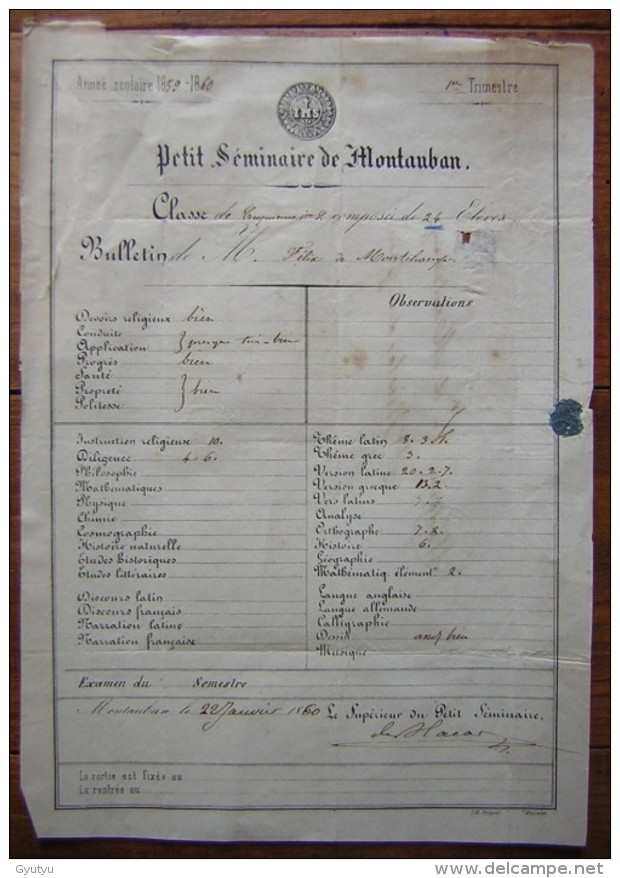 Année scolaire 1859-1860
1er Trimestre
IHS
Petit Séminaire de Montauban.
Classe de composée de 24 Elèves
Bulletin de M. Félix de Montchamp.
Observations
Devoirs religieux bien
Conduite
Application } presque très-bien
Progrès bien
Santé
Propreté } bien
Politesse
Instruction religieuse 10.
Diligence 4.6.
Philosophie
Mathématiques
Physique
Chimie
Cosmographie
Histoire naturelle
Etudes historiques
Etudes littéraires
Discours latin
Discours français
Narration latine
Narration française
Thème latin 8.3.
Thème grec 3.
Version latine 20.2.7.
Version grecque 13.2
Vers latins
Analyse
Orthographe 7.8.
Histoire 6.
Géographie
Mathématiq. élément. 2.
Langue anglaise
Langue allemande
Calligraphie
Dessin assez bien
Musique
Examen du Semestre
Montauban le 22 Janvier 1860 Le Supérieur du Petit Séminaire,
La sortie est fixée au
La rentrée au
Gyutyu
www.delcampe.net